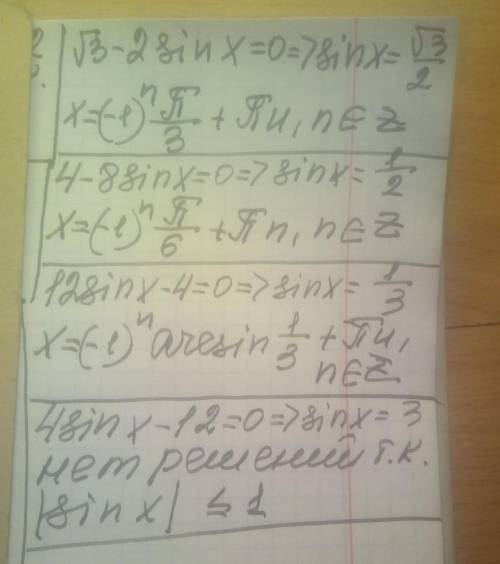 √3 - 2 sin x = 0 => sin x = √3/2
x = (-1)ⁿ π/3 + πn, n ∈ Z
4 - 8 sin x = 0 => sin x = 1/2
x = (-1)ⁿ π/6 + πn, n ∈ Z
12 sin x - 4 = 0 => sin x = 1/3
x = (-1)ⁿ arcsin 1/3 + πn,
n ∈ Z
4 sin x - 12 = 0 => sin x = 3
нет решений т.к.
|sin x| ≤ 1